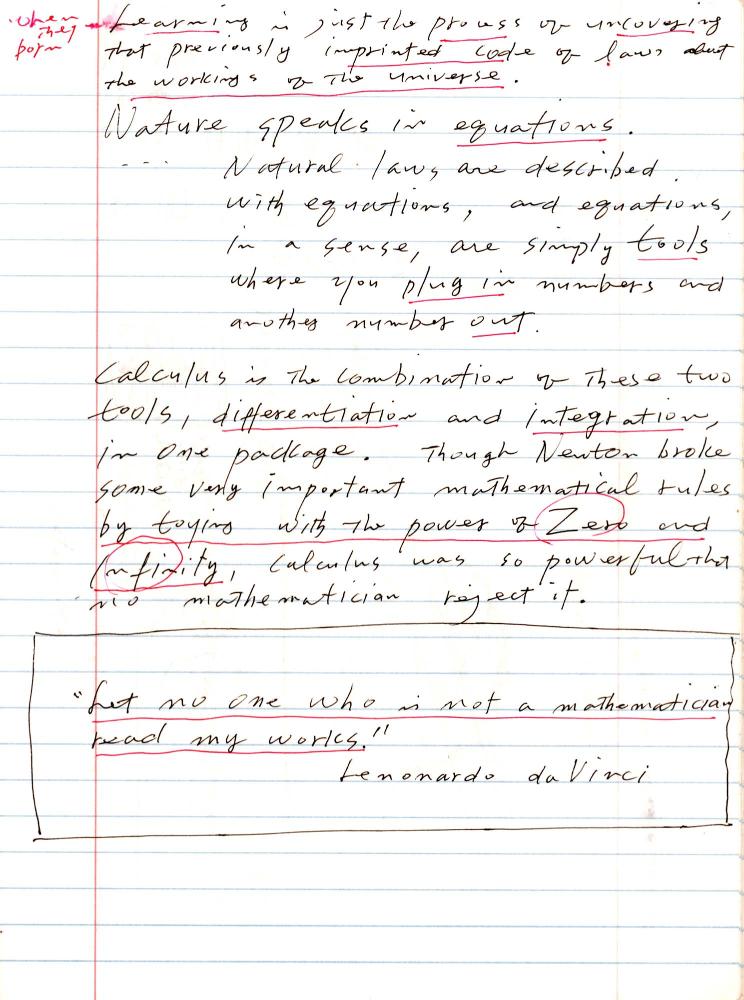 when
they
born
Learning is just the process of uncovering
that previously imprinted code of laws about
the workings of the universe.
Nature speaks in equations.
.... Natural laws are described
with equations, and equations,
in a sense, are simply tools
where you plug in numbers and
another number out.
Calculus is the combination of these two
tools, differentiation and integration,
in one package. Though Newton broke
some very important mathematical rules
by toying with the power of Zero and
Infinity, Calculus was so powerful that
no mathematician reject it.
"Let no one who is not a mathematician
read my works."
Lenonardo da Vinci